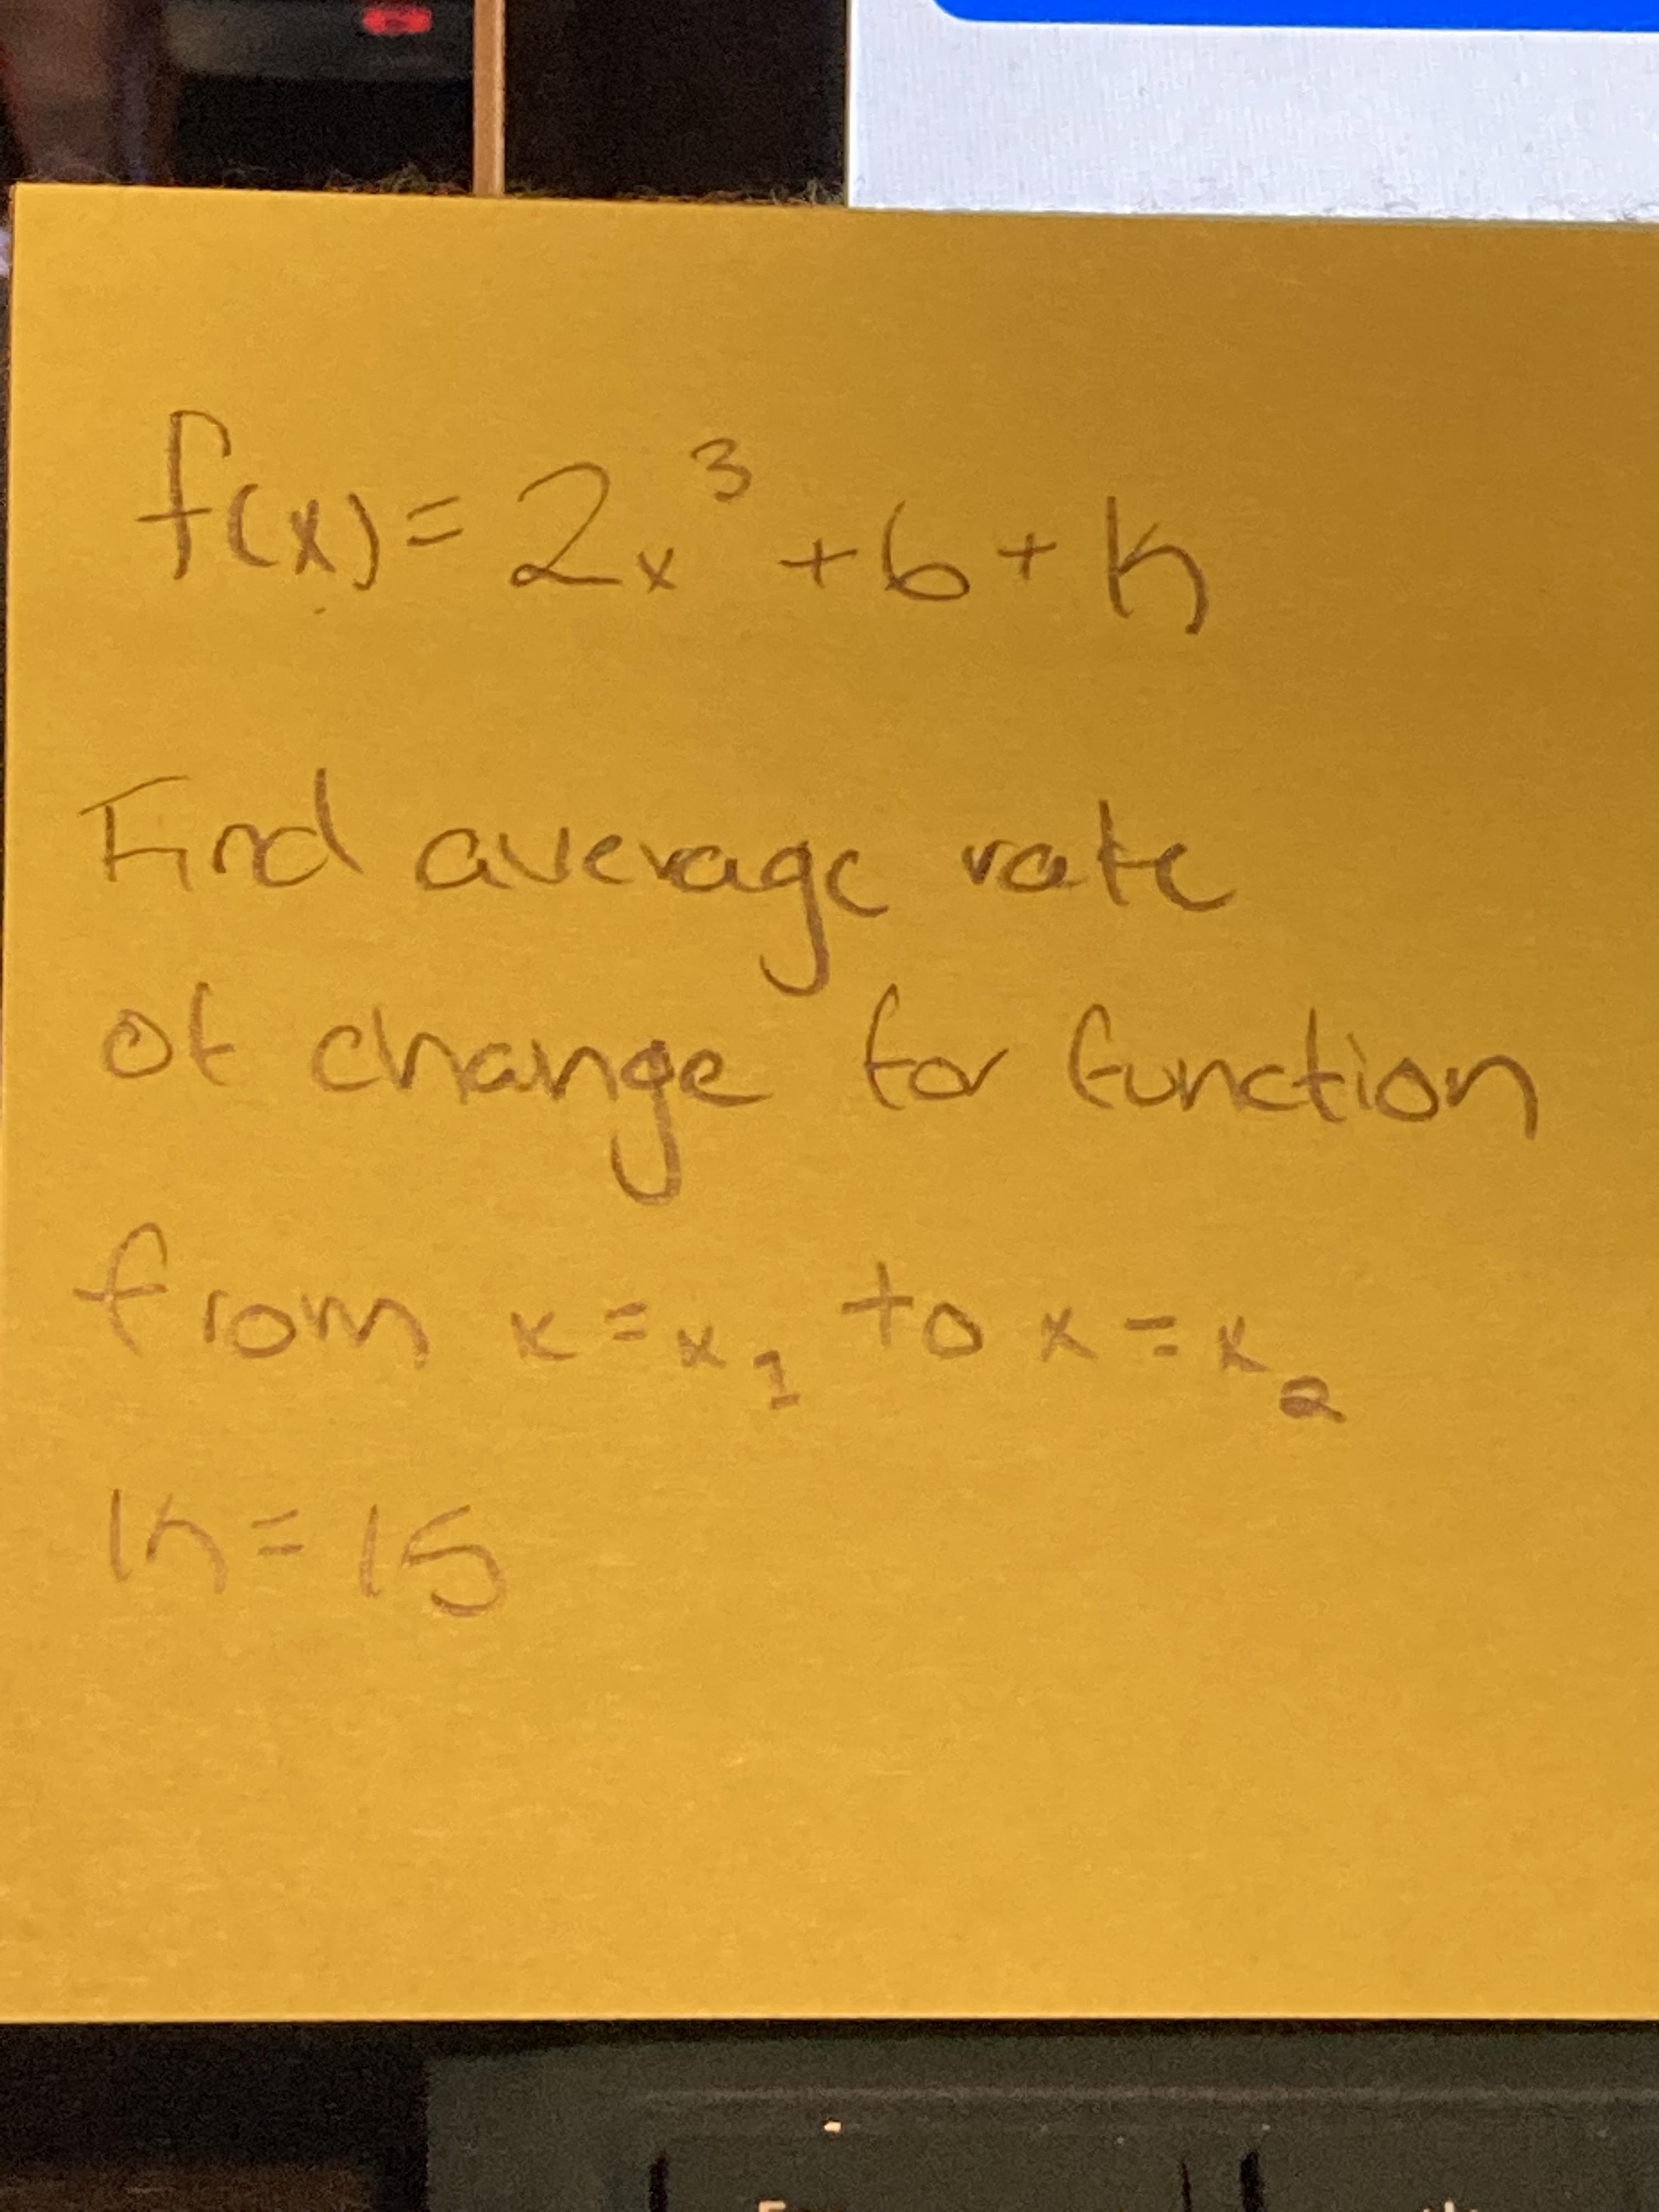 f(x) = 2x³ + 6 + k
Find average rate
of change for function
from x = x₁ to x = x₂
k = 15